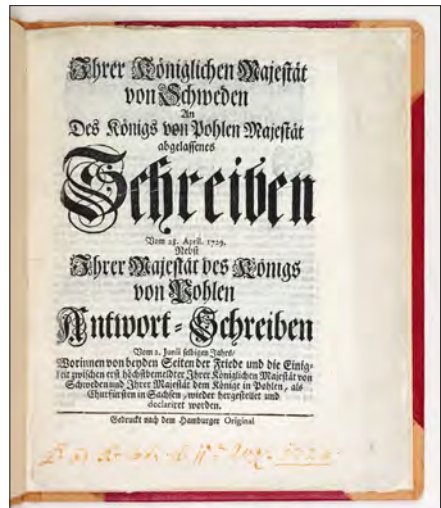 Ihrer Königlichen Majestät
von Schweden
An
Des Königs von Pohlen Majestät
abgelassenes
Schreiben
Vom 28. April. 1729.
Nebst
Ihrer Majestät des Königs
von Pohlen
Antwort-Schreiben
Vom 2. Junii selbigen Jahrs/
Worinnen von beyden Seiten der Friede und die Einig-
keit zwischen erst höchstbemeldter Ihrer Königlichen Majestät von
Schweden und Ihrer Majestät dem Könige in Pohlen, als
Churfürsten in Sachsen, wieder hergestellet und
declariret worden.
Gedruckt nach dem Hamburger Original